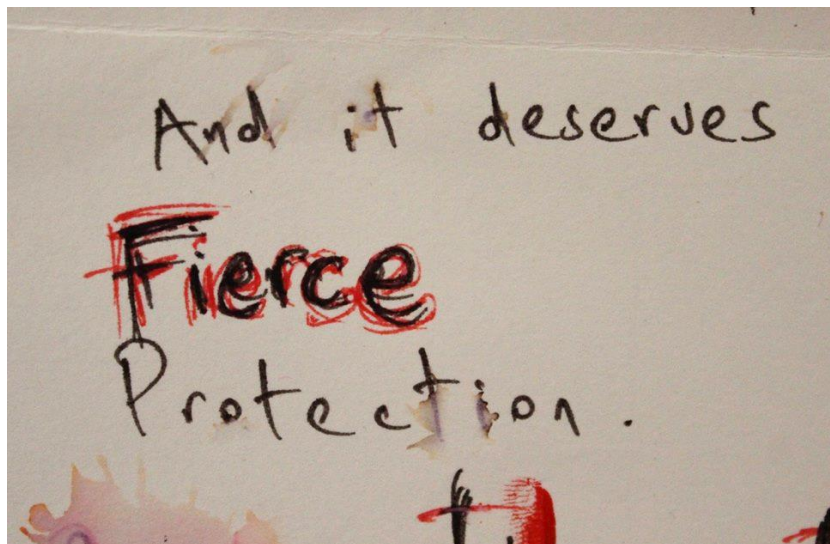 And it deserves
Fierce
Protection.